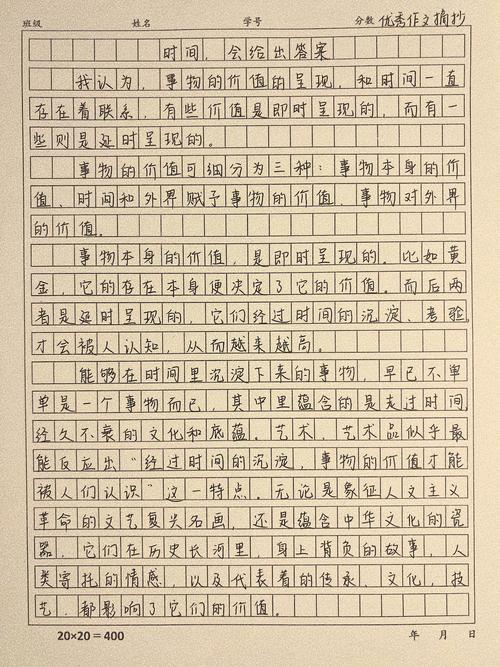 班级 姓名 学号 分数 优秀作文摘抄
时间，会给出答案
我认为，事物的价值的呈现，和时间一直
存在着联系，有些价值是即时呈现的，而有一
些则是延时呈现的。
事物的价值可细分为三种：事物本身的价
值、时间和外界赋予事物的价值、事物对外界
的价值。
事物本身的价值，是即时呈现的。比如黄
金，它的存在本身便决定了它的价值。而后两
者是延时呈现的，它们经过时间的沉淀、考验，
才会被人认知，从而越来越高。
能够在时间里沉淀下来的事物，早已不单
单是一个事物而已，其中里蕴含的是走过时间，
经久不衰的文化和底蕴。艺术，艺术品似乎最
能反应出“经过时间的沉淀，事物的价值才能
被人们认识”这一特点。无论是象征人文主义
革命的文艺复兴名画，还是蕴含中华文化的瓷
器，它们在历史长河里，身上背负的故事，人
类寄托的情感，以及代表着的传承、文化，技
艺，都影响了它们的价值。
20×20＝400 年 月 日